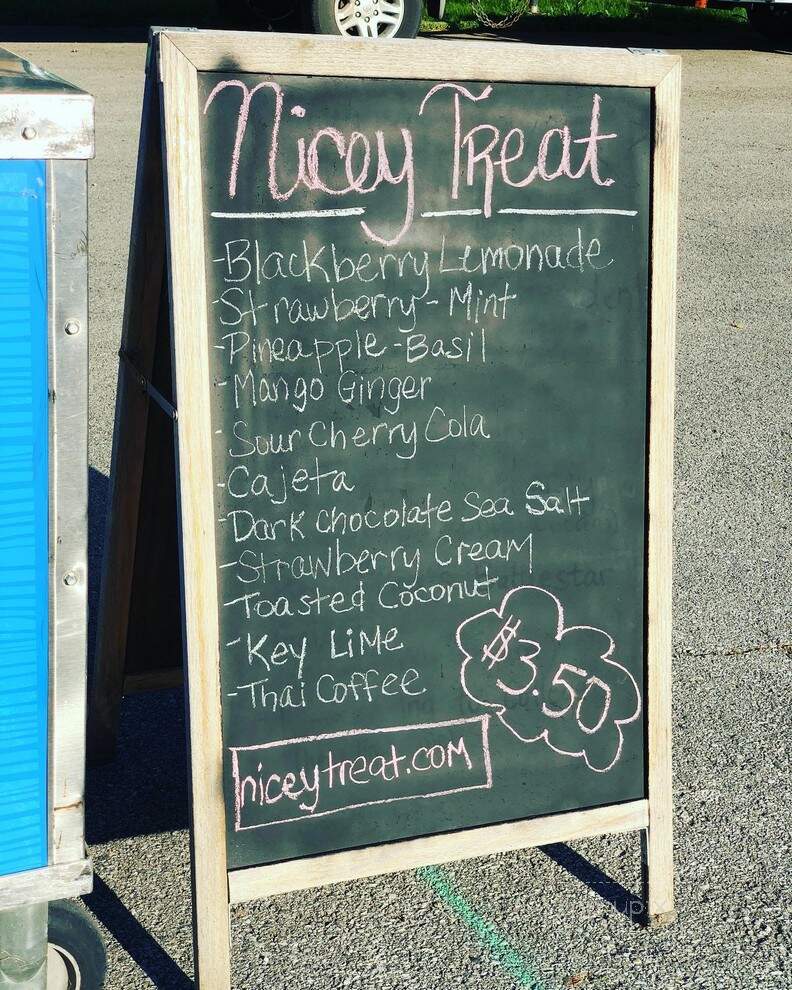 Nicey Treat
-Blackberry Lemonade
-Strawberry-Mint
-Pineapple-Basil
-Mango Ginger
-Sour Cherry Cola
-Cajeta
-Dark Chocolate Sea Salt
-Strawberry Cream
-Toasted Coconut
-Key Lime
-Thai Coffee
$3.50
niceytreat.com